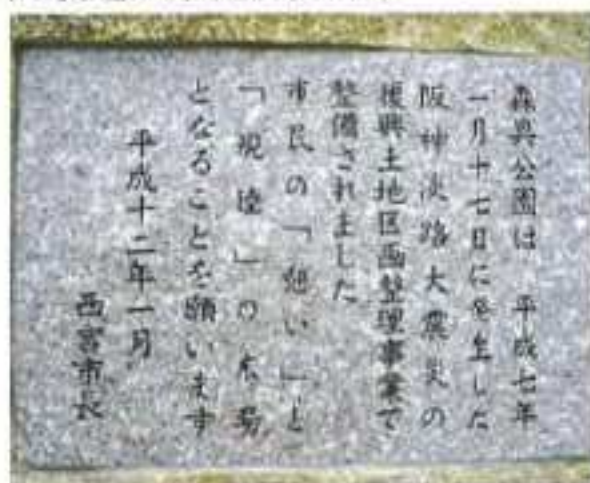 森具公園は 平成七年
一月十七日に発生した
阪神淡路大震災の
復興土地区画整理事業で
整備されました
市民の「憩い」と
「親睦」の広場
となることを願います
平成十二年一月
西宮市長